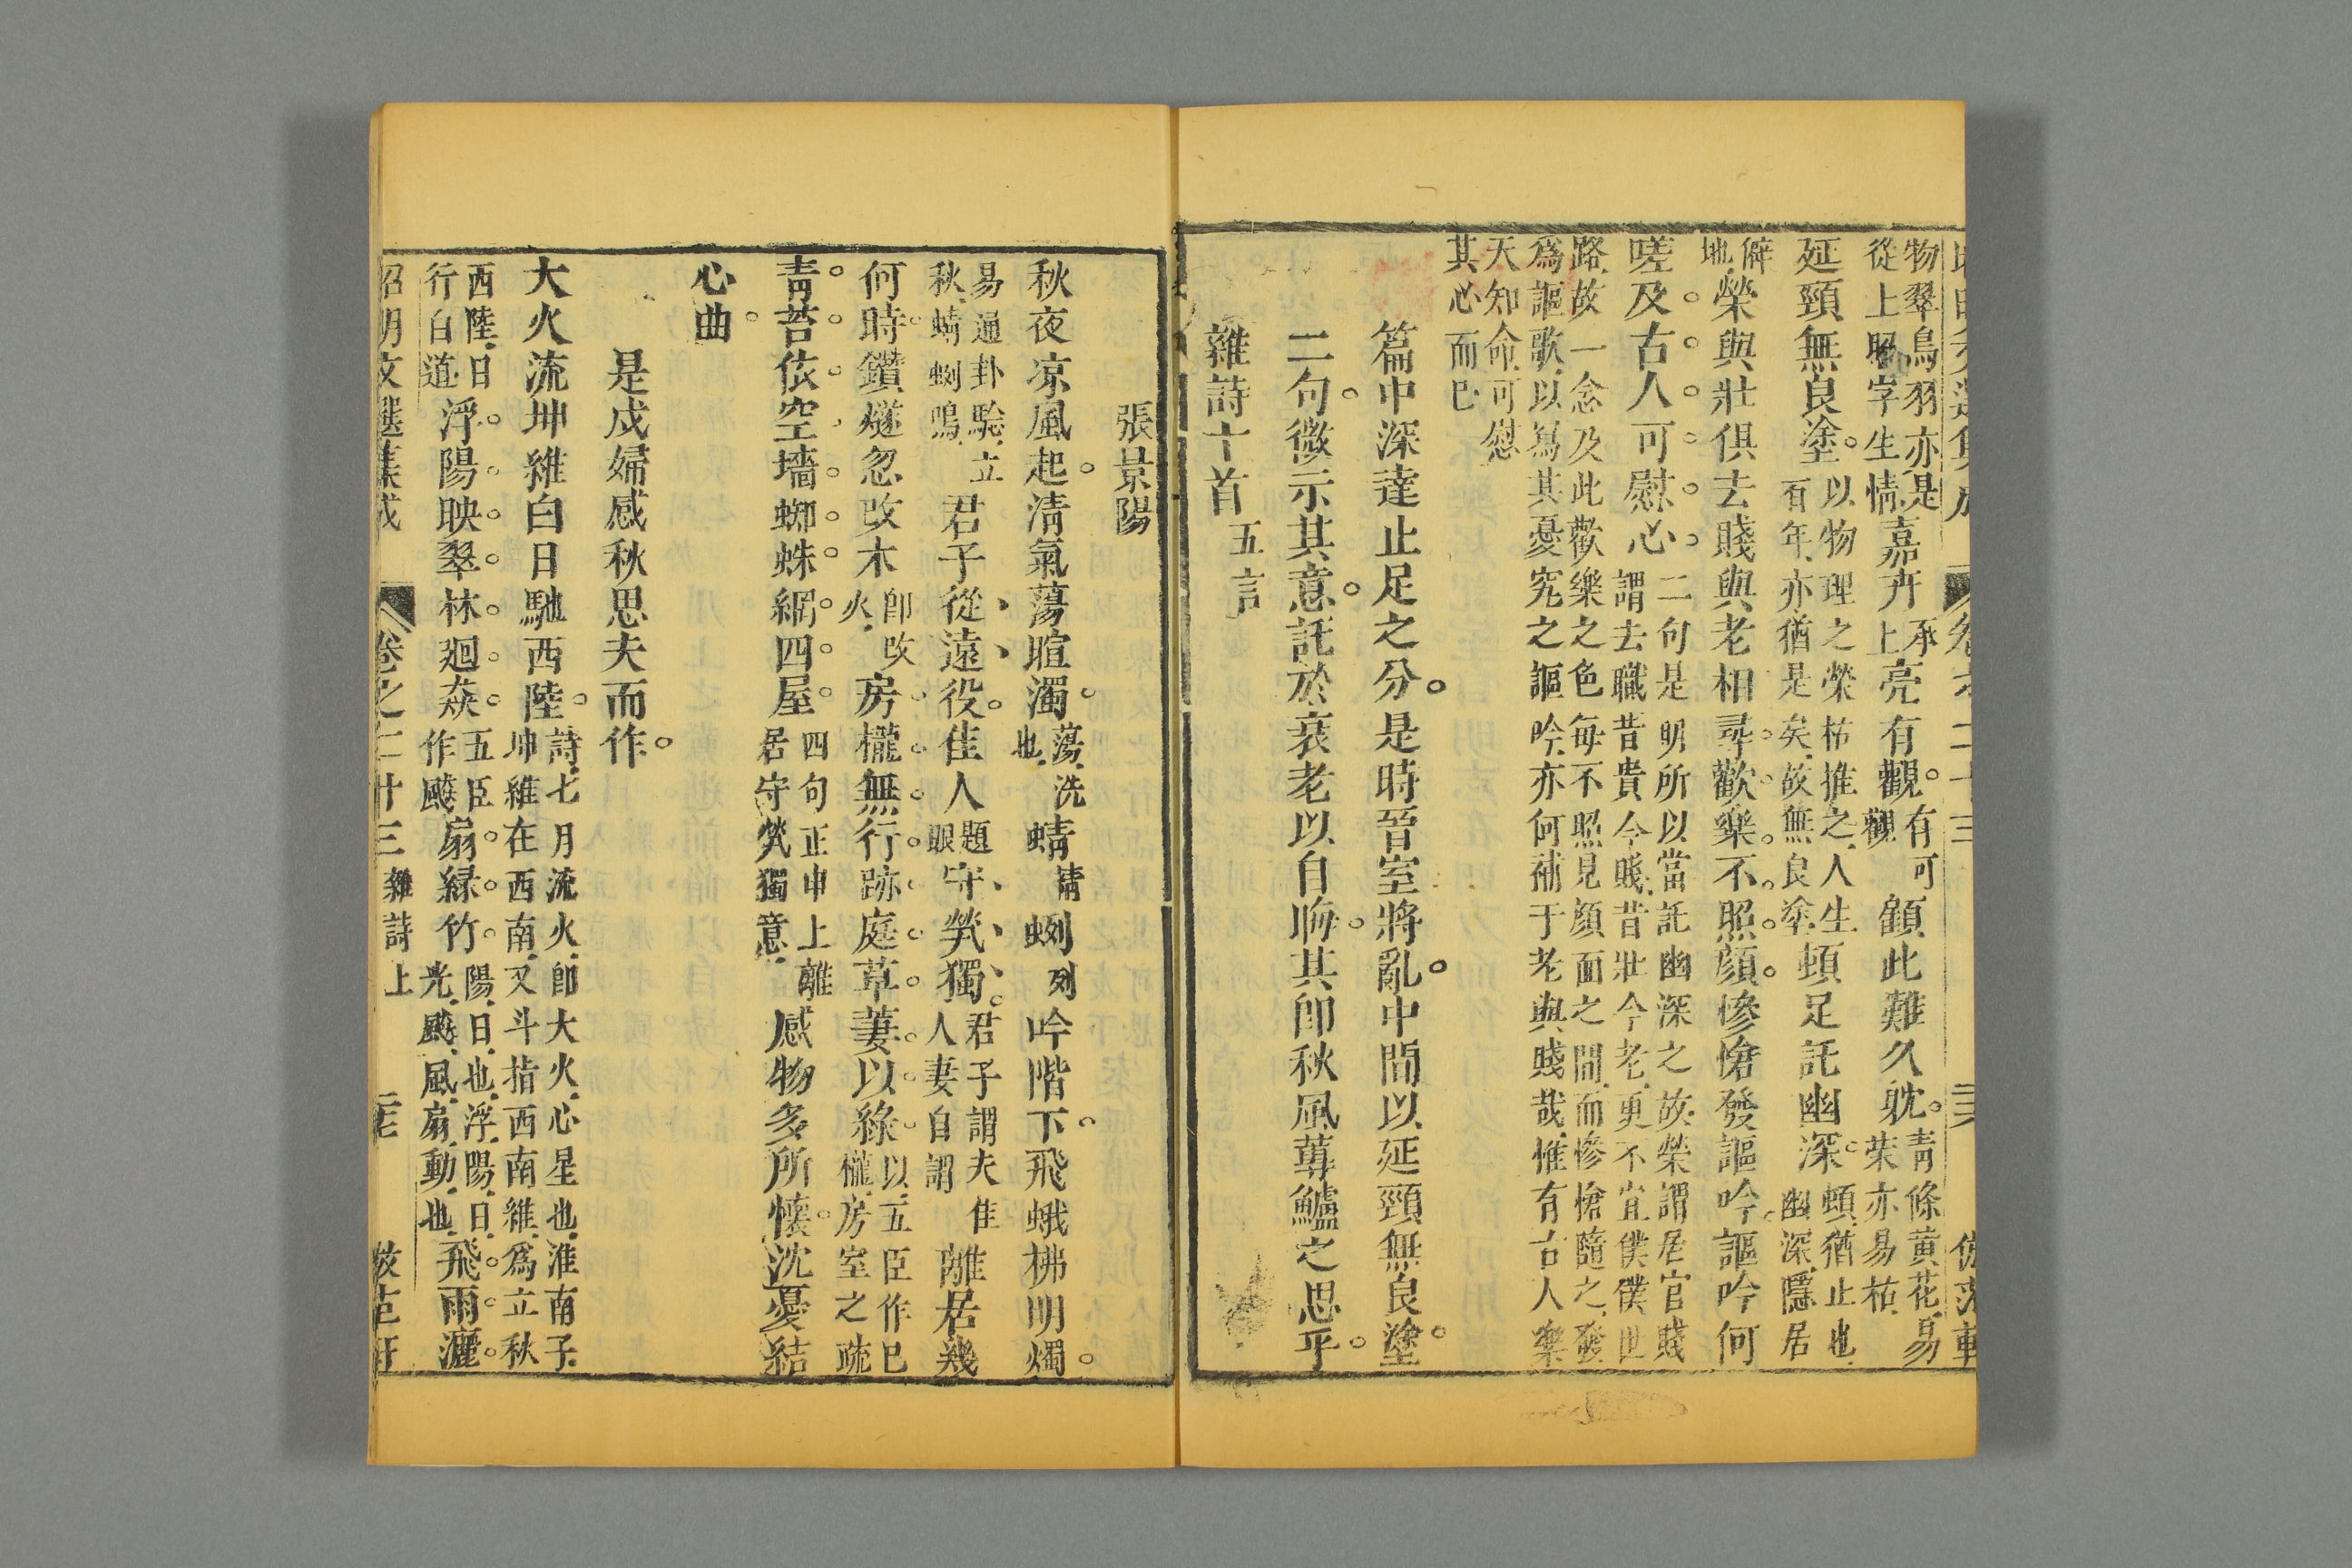 物翠鳥羽亦是
從上照字生情
嘉卉
承
上
亮有觀
有可
觀
顧此難久躭
青條黃花易
茱亦易枯
延頸無良塗
以物理之榮枯推之人生
百年亦猶是矣故無良塗
頓足託幽深
頓猶止也
幽深隱居
僻
地
榮與壯俱去賤與老相尋歡樂不照顏慘愴發謳吟謳吟何
嗟及古人可慰心
二句是明所以當託幽深之故榮謂居官賤
謂去職昔貴今賤昔壯今老更不宜僕僕世
路故一念及此歡樂之色每不照見顏面之間而慘愴隨之發
爲謳歌以爲其憂究之謳吟亦何補于老與賤哉惟有古人樂
天知命可慰
其心而已
篇中深達止足之分是時晉室將亂中間以延頸無良塗
二句微示其意託於衰老以自晦其卽秋風蓴鱸之思乎
雜詩十首
五言
張景陽
秋夜凉風起淸氣蕩暄濁
蕩洗
也
蜻
精
蛚
列
吟階下飛蛾拂明燭
易通卦驗立
秋蜻蛚鳴
君子從遠役佳人
題
眼
守煢獨
君子謂夫佳
人妻自謂
離居幾
何時鑽燧忽改木
卽改
火
房櫳無行跡庭草萋以綠
以五臣作已
櫳房室之疏
靑苔依空墻蜘蛛網四屋
四句正申上離
居守煢獨意
感物多所懷沈憂結
心曲
是戍婦感秋思夫而作
大火流坤維白日馳西陸
詩七月流火卽大火心星也淮南子
坤維在西南又斗指西南維爲立秋
西陸日
行白道
浮陽映翠林廻猋
五臣
作飈
扇綠竹
陽日也浮陽日
光飈風扇動也
飛雨灑
昭明文選集成
卷之二十三
雜詩上